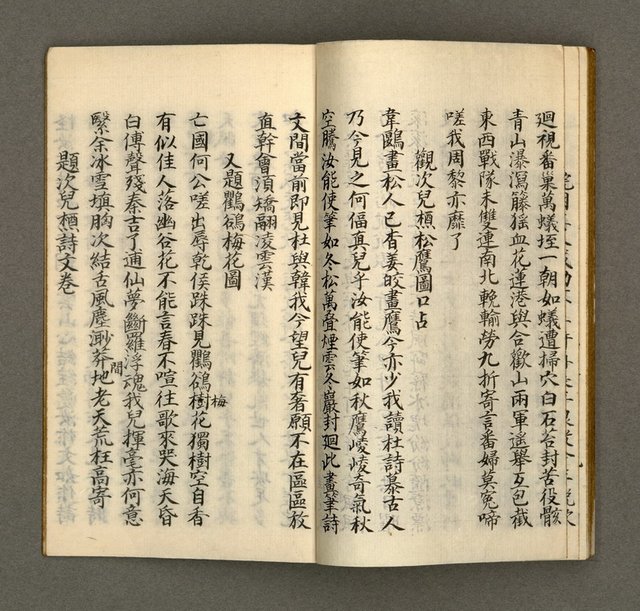 迴視番巢萬蟻垤一朝如蟻遭掃穴白石台封苦役骸
青山瀑瀉籐猺血花蓮港與合歡山兩軍遙舉互包截
東西戰隊末雙連南北輓輸勞九折寄言番婦莫冤啼
嗟我周黎亦靡了
觀次兒樵松鷹圖口占
韋鷗畫松人已杳姜皎畫鷹今亦少我讀杜詩慕古人
乃今見之何偪真兒乎汝能使筆如秋鷹崚崚奇氣秋
空騰汝能使筆如冬松萬疊煙雲冬巖封迴此畫筆詩
文間當前即見杜與韓我今望兒有奢願不在區區放
直幹會須矯翮淩雲漢
又題鸜鵒梅花圖
亡國何公嗟出辱乾侯跦跦見鸜鵒樹梅花獨樹空自香
有似佳人落幽谷花不能言春不喧往歌來哭海天昏
白傅聲殘秦吉了逋仙夢斷羅浮魂我兒揮毫亦何意
繄余冰雪填胸次結舌風塵渺莽間地老天荒枉高寄
題次兒樵詩文卷